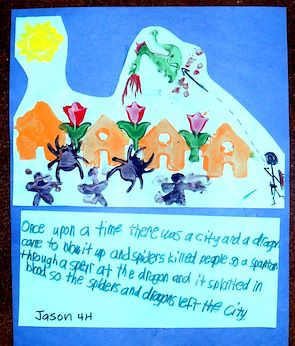 Once upon a time there was a city and a dragon
came to blow it up and spiders killed people so a spartan
through a spear at the dragon and it splatted in
blood so the spiders and dragons left the city.
Jason 4H